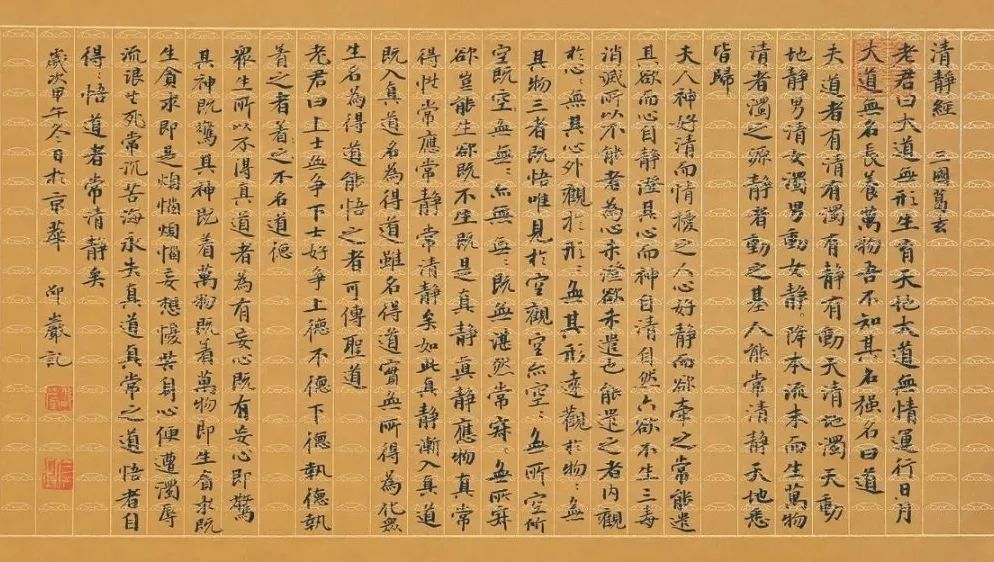 清靜經 三國葛玄
老君曰大道無形生育天地大道無情運行日月
大道無名長養萬物吾不知其名强名曰道
夫道者有清有濁有静有動天清地濁天動
地静男清女濁男動女静。降本流末而生萬物
清者濁之源静者動之基人能常清静天地悉
皆歸
夫人神好清而情擾之人心好静而欲牽之常能遣
其欲而心自静澄其心而神自清自然六欲不生三毒
消滅所以不能者為心未澄欲未遣也能遣之者内觀
於心無其心外觀於形〻無其形遠觀於物〻無
其物三者既悟唯見於空觀空亦空〻無所空所
空既空無無〻亦無無〻既無湛然常寂無所寂
欲豈能生欲既不生既是真静真静應物真常
得性常應常静常清静矣如此真静漸入真道
既入真道名為得道雖名得道實無所得為化衆
生名為得道能悟之者可傳聖道
老君曰上士無争下士好争上德不德下德執德執
着之者着之不名道德
衆生所以不得真道者為有妄心既有妄心即驚
其神既驚其神既着萬物既着萬物即生貪求既
生貪求即是煩惱煩惱妄想憂苦身心便遭濁辱
流浪生死常沉苦海永失真道真常之道悟者自
得〻悟道者常清静矣
歲次甲午冬日於京華 巖記